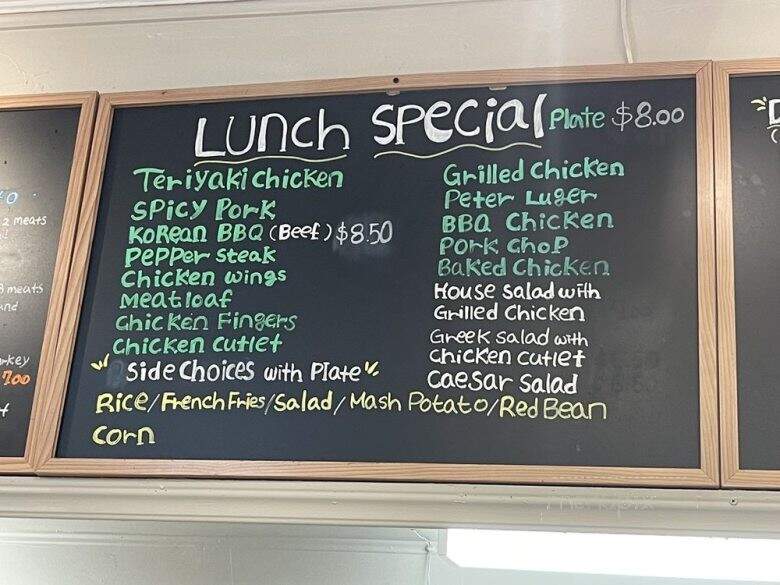 Lunch Special Plate $8.00
Teriyaki Chicken
Spicy Pork
Korean BBQ (Beef) $8.50
Pepper Steak
Chicken wings
Meatloaf
Chicken Fingers
Chicken cutlet
Grilled Chicken
Peter Luger
BBQ Chicken
Pork Chop
Baked Chicken
House Salad with
Grilled Chicken
Greek Salad with
Chicken cutlet
Caesar Salad
Side Choices with Plate
Rice/French Fries/Salad/Mash Potato/Red Bean
Corn
2 meats
meats
7.00